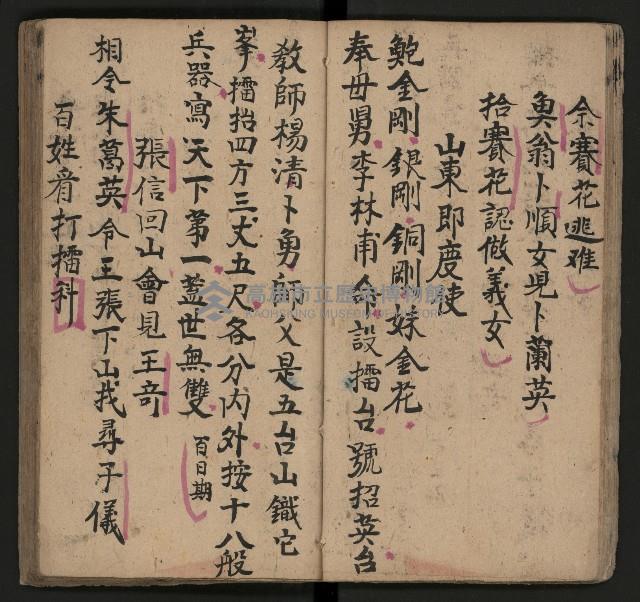 余賽花逃难
魚翁卜順女児卜蘭英
拾賽花認做義女
山東即慶使
鮑金剛銀剛銅剛妹金花
奉母舅李林甫令設擂台號招英台
教師楊清卜勇師父是五台山鐵它
峯擂抬四方三丈五尺各分内外按十八般
兵器寫天下第一蓋世無雙百日期
張信回山會見王竒
相令朱萬英令王張下山我尋子儀
百姓看打擂科
高雄市立歷史博物館
KAOHSIUNG MUSEUM OF HISTORY